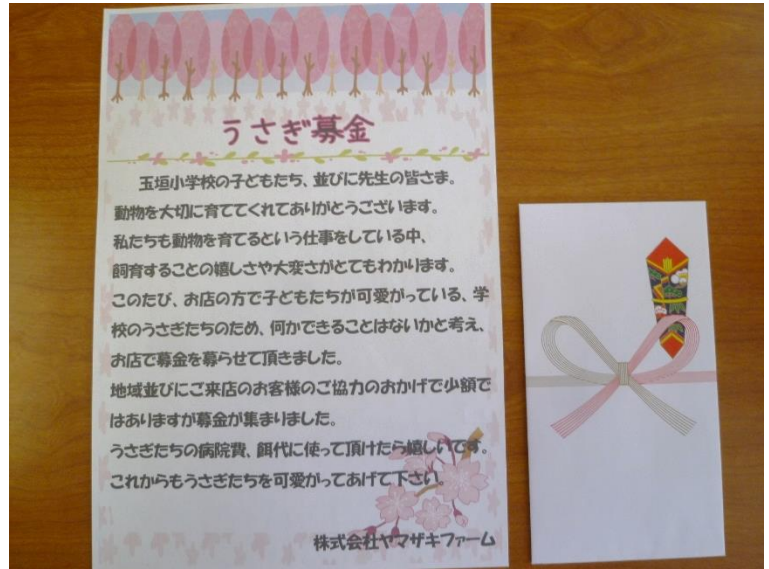 うさぎ募金
玉垣小学校の子どもたち、並びに先生の皆さま。
動物を大切に育ててくれてありがとうございます。
私たちも動物を育てるという仕事をしている中、
飼育することの嬉しさや大変さがとてもわかります。
このたび、お店の方で子どもたちが可愛がっている、学
校のうさぎたちのため、何かできることはないかと考え、
お店で募金を募らせて頂きました。
地域並びにご来店のお客様のご協力のおかげで少額で
はありますが募金が集まりました。
うさぎたちの病院費、餌代に使って頂けたら嬉しいです。
これからもうさぎたちを可愛がってあげて下さい。
株式会社ヤマザキファーム